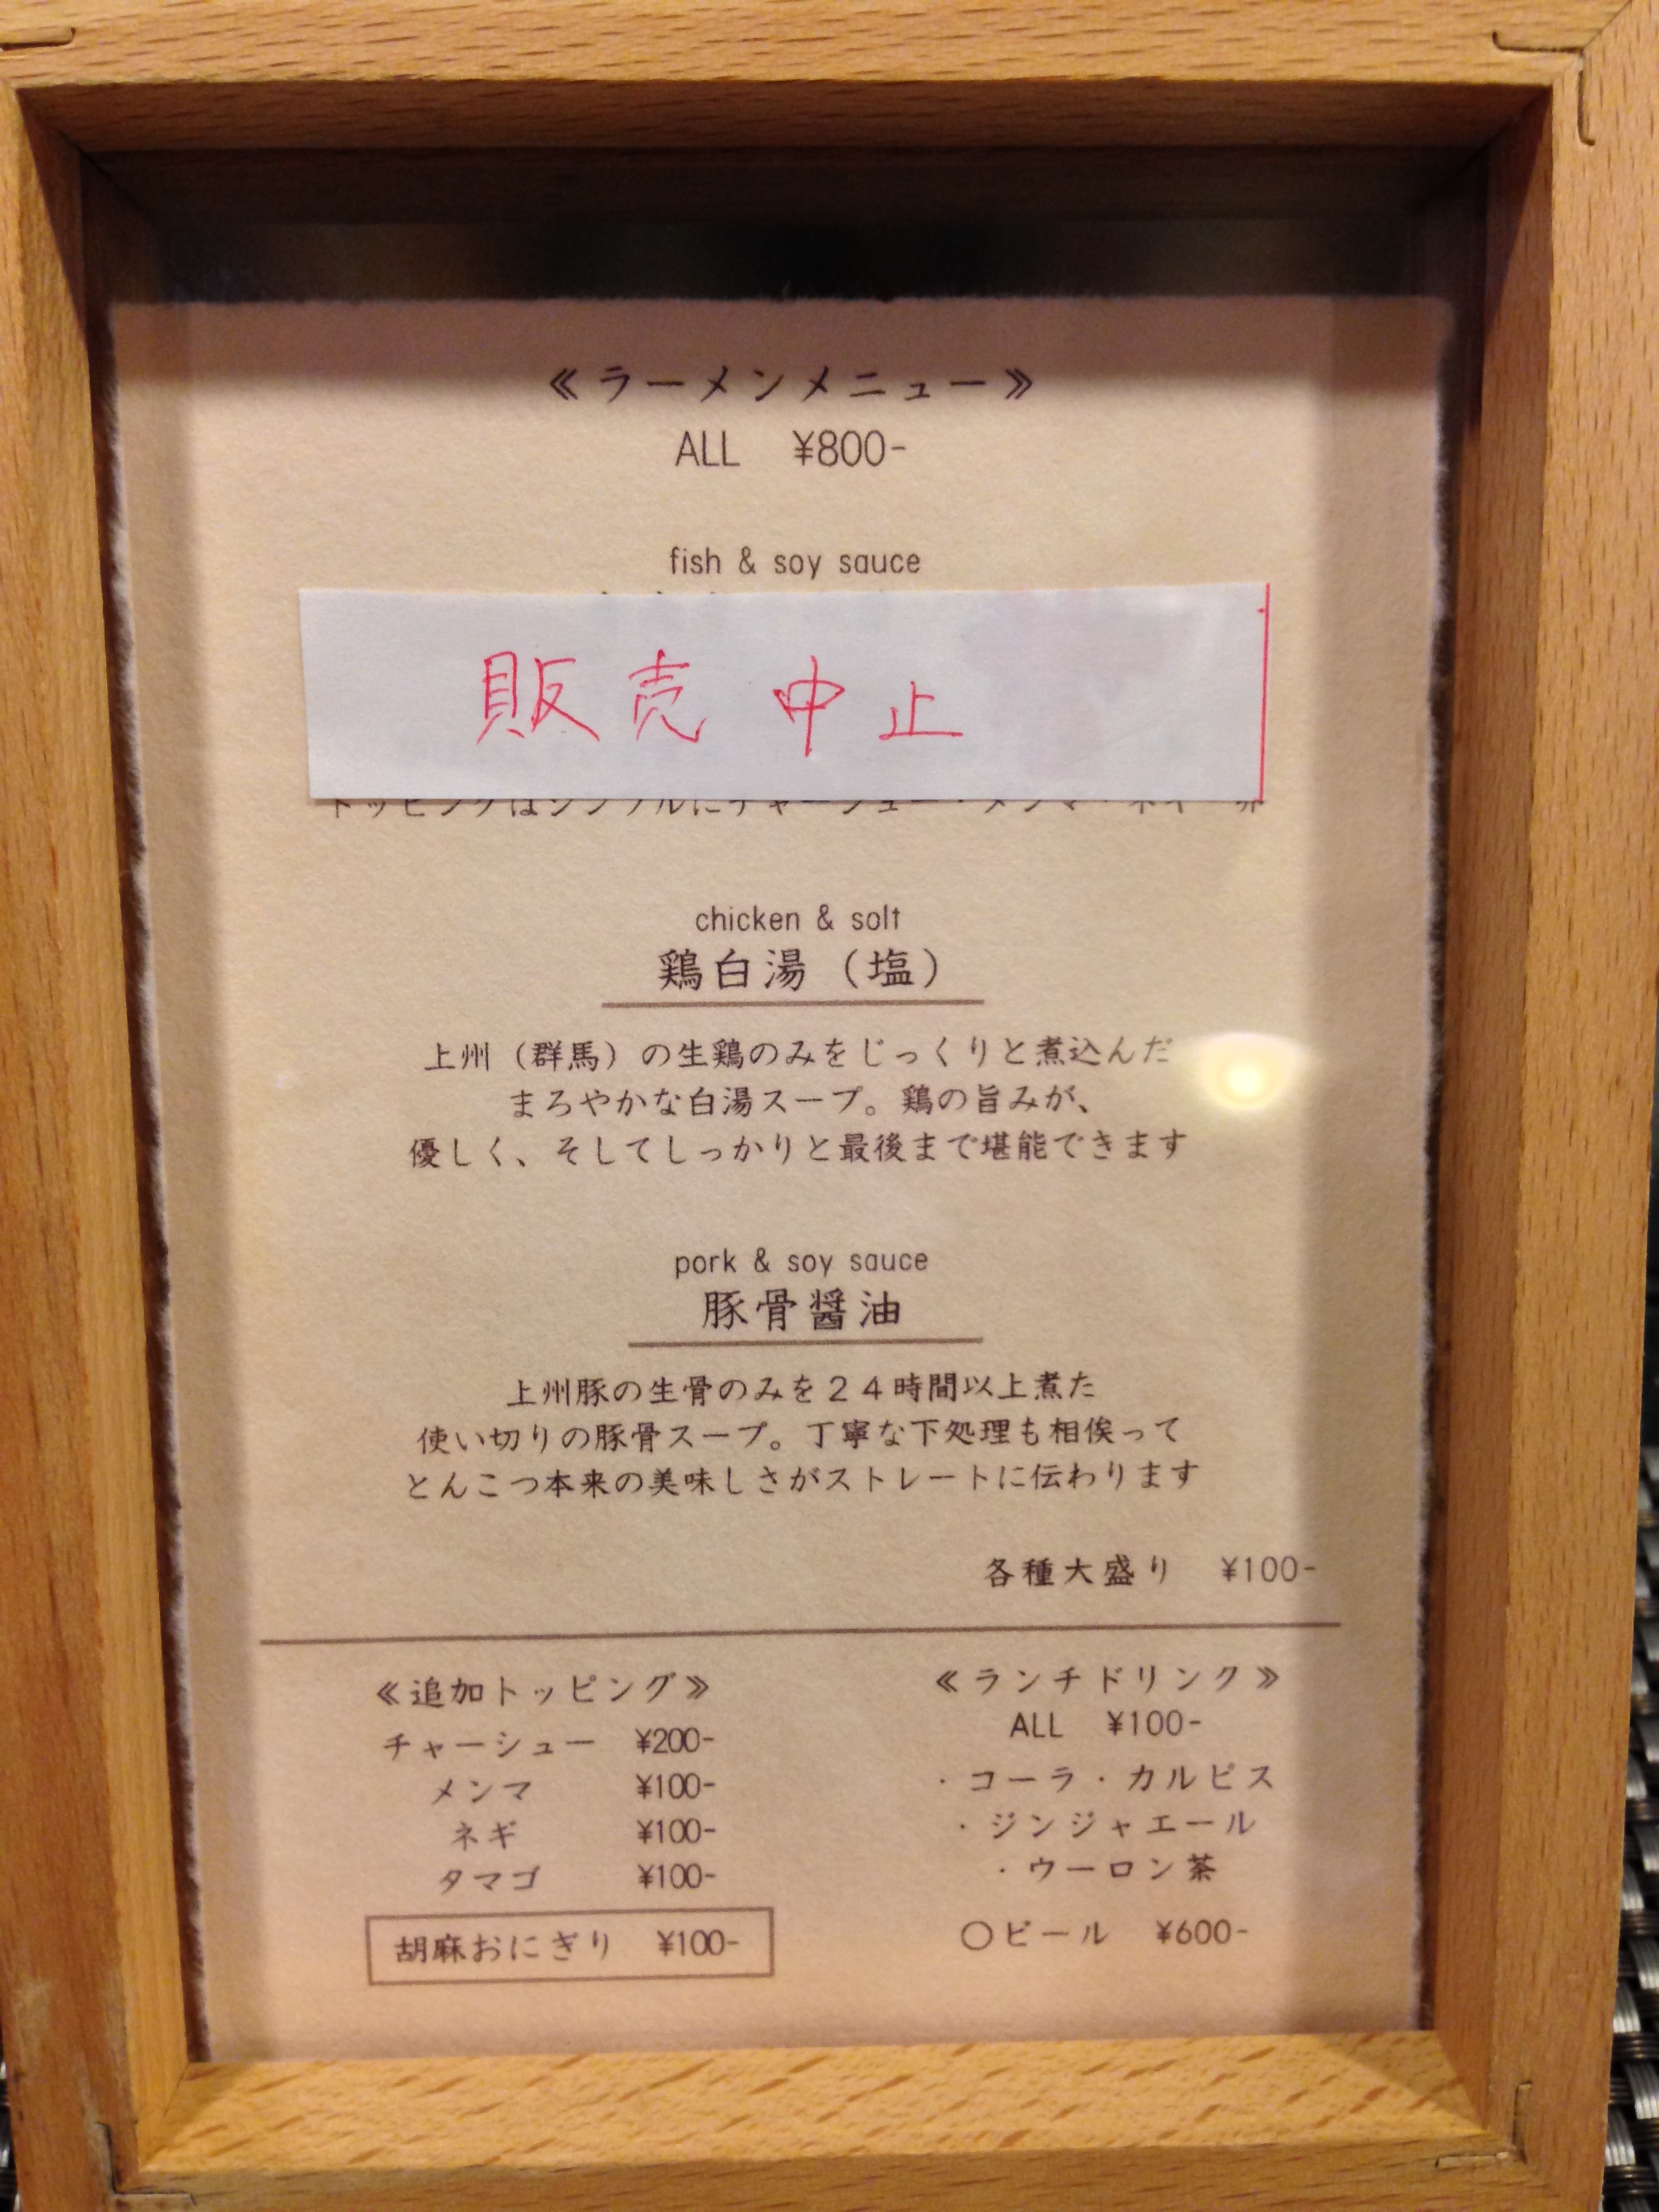 ≪ラーメンメニュー≫
ALL ¥800-
fish & soy sauce
販売中止
トッピングはシンプルにチャーシュー・メンマ・ネギ
chicken & solt
鶏白湯（塩）
上州（群馬）の生鶏のみをじっくりと煮込んだ
まろやかな白湯スープ。鶏の旨みが、
優しく、そしてしっかりと最後まで堪能できます
pork & soy sauce
豚骨醤油
上州豚の生骨のみを２４時間以上煮た
使い切りの豚骨スープ。丁寧な下処理も相俟って
とんこつ本来の美味しさがストレートに伝わります
各種大盛り ¥100-
≪追加トッピング≫
チャーシュー ¥200-
メンマ ¥100-
ネギ ¥100-
タマゴ ¥100-
胡麻おにぎり ¥100-
≪ランチドリンク≫
ALL ¥100-
・コーラ・カルピス
・ジンジャエール
・ウーロン茶
○ビール ¥600-